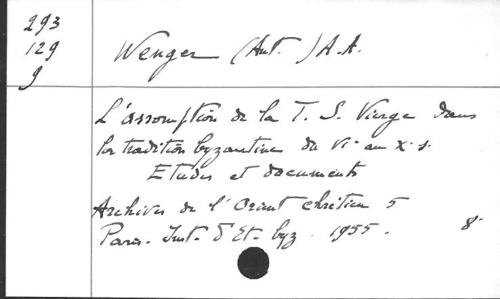 293
129
9
Wenger (Ant.) A.A.
L'assomption de la T. S. Vierge dans
la tradition byzantine du VIe au Xe s.
Etudes et documents
Archives de l'Orient Chrétien 5
Paris. Inst. d'Et. byz. 1955. 8°